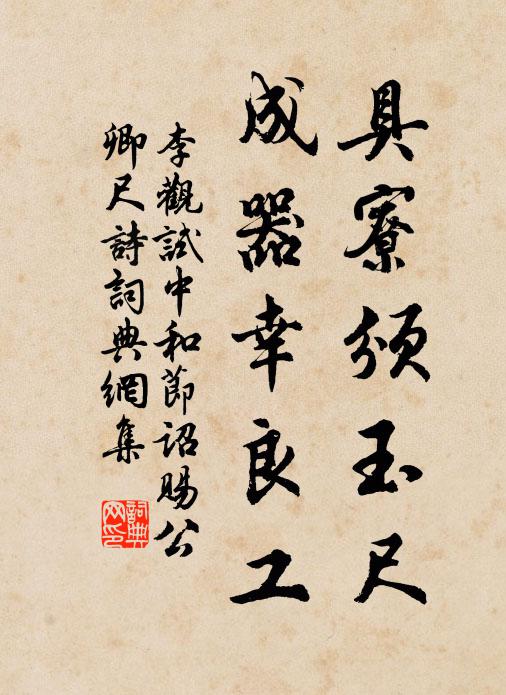 具寮頒玉尺
成器幸良工
李觀試中和節詔賜公
卿尺詩詞典網集
詞典网印